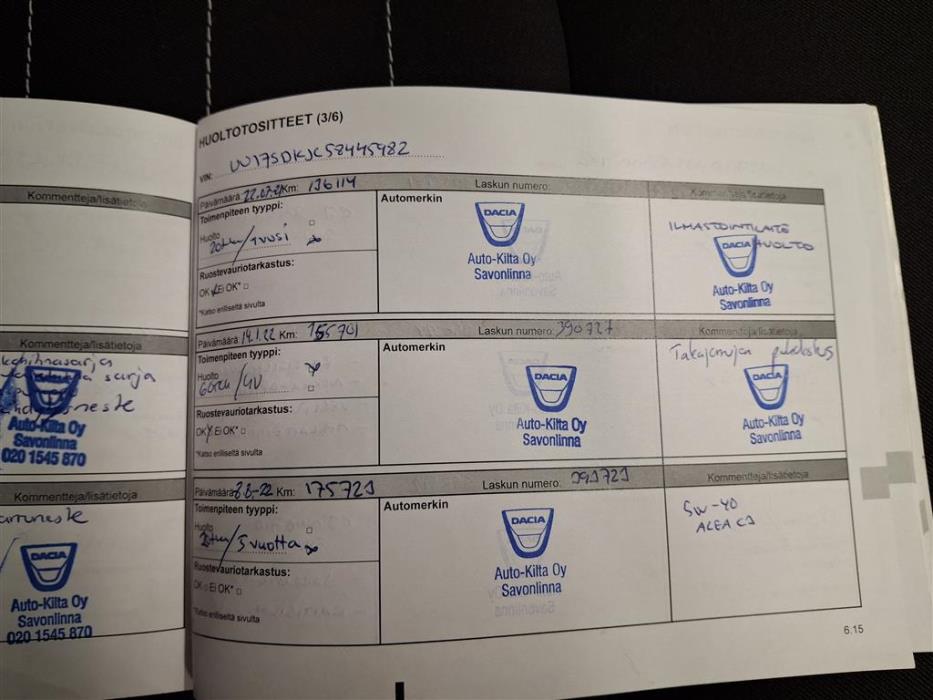 Kommentteja/lisätietoja
Kommentteja/lisätietoja
sarja
DACIA
Auto-Kilta Oy
Savonlinna
020 1545 870
Kommentteja/lisätietoja
DACIA
Auto-Kilta Oy
Savonlinna
020 1545 870
HUOLTOTOSITTEET (3/6)
VIN:
Päivämäärä: Km: 136114
Laskun numero:
Kommentteja/lisätietoja
Toimenpiteen tyyppi:
Huolto
20tkm/1vuosi
Ruostevauriotarkastus:
OK Ei OK*
*Katso erilliseltä sivulta
Automerkin
DACIA
Auto-Kilta Oy
Savonlinna
ILMASTOINTILAITE
HUOLTO
DACIA
Auto-Kilta Oy
Savonlinna
Päivämäärä: 14.1.22 Km: 155701
Laskun numero: 390727
Kommentteja/lisätietoja
Toimenpiteen tyyppi:
Huolto
Ruostevauriotarkastus:
OK Ei OK*
*Katso erilliseltä sivulta
Automerkin
DACIA
Auto-Kilta Oy
Savonlinna
Takajarrujen puhdistus
DACIA
Auto-Kilta Oy
Savonlinna
Päivämäärä: Km: 175721
Laskun numero:
Kommentteja/lisätietoja
Toimenpiteen tyyppi:
Huolto
/5 vuotta
Ruostevauriotarkastus:
OK Ei OK*
*Katso erilliseltä sivulta
Automerkin
DACIA
Auto-Kilta Oy
Savonlinna
5W-40
ACEA C3
6.15